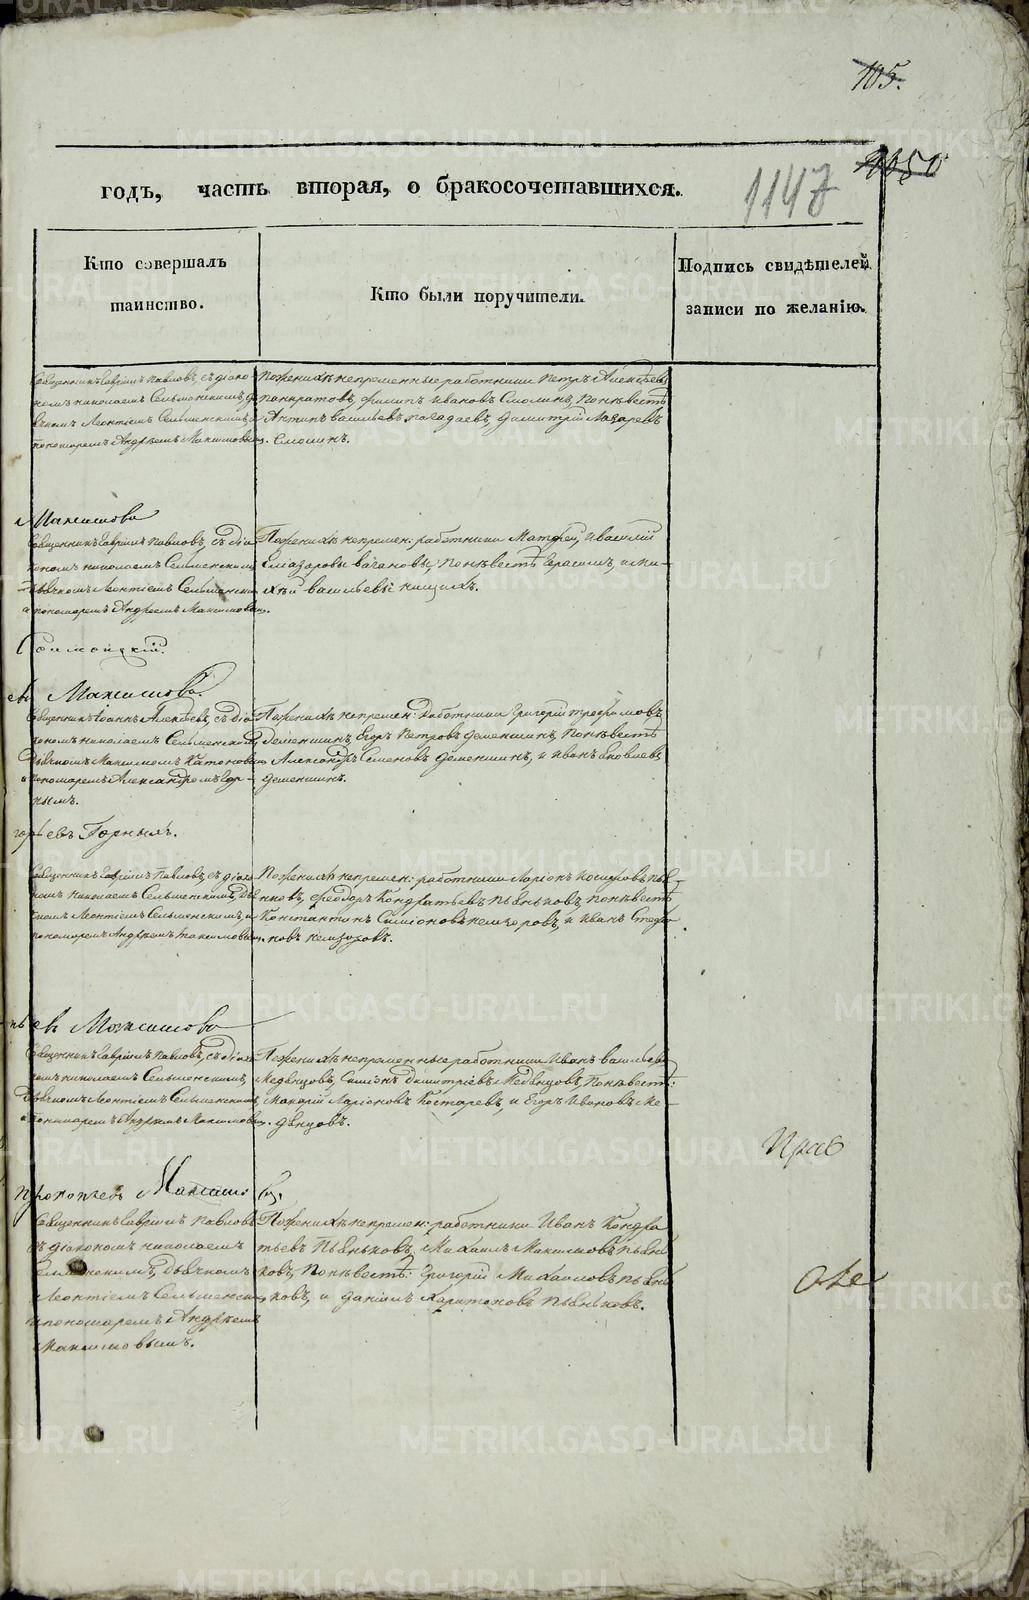 105.
1050
1147
годъ, часть вторая, о бракосочетавшихся.
Кто совершалъ
таинство.
Кто были поручители.
Подпись свидѣтелей
записи по желанію.
Священникъ Гавріилъ Павловъ, съ діако-
номъ Николаемъ Сельменскимъ, дь
ячкомъ Леонтіемъ Сельменскимъ, и
пономаремъ Андреемъ Максимовым.
По женихѣ непременные работники Петръ Алексѣевъ
Панкратовъ, Филипъ Ивановъ Смолинъ, По невѣстѣ
Антипъ Васильевъ Погадаевъ, Димитрій Лазаревъ
Смолинъ.
Максимова
Священникъ Гавріилъ Павловъ, съ діа
кономъ Николаемъ Сельменскимъ
дьячкомъ Леонтіемъ Сельменским
и пономаремъ Андреемъ Максимовым.
По женихѣ непремен: работники Матфей, и Василій
Елизаровы Вагановы, По невѣстѣ Герасимъ, и Ми-
хѣй Васильевы
Священникъ Іоаннъ Алексѣевъ, съ діа
кономъ Николаемъ Сельменскимъ
Дьячкомъ Максимомъ
и пономаремъ Александромъ Гор-
нымъ.
евъ Максимова.
По женихѣ непремен: работники Григорій Трофимовъ
Деменшинъ, Егоръ Петровъ Деменшинъ, По невѣстѣ
Александръ Семеновъ Деменшинъ, и Иванъ Яковлевъ
Деменшинъ.
горьевъ Горнымъ.
Священникъ Гавріилъ Павловъ, съ діако
номъ Николаемъ Сельменскимъ, дья
чкомъ Леонтіемъ Сельменскимъ, и
пономаремъ Андреемъ Максимовым.
По женихѣ непремен: работники Ларіонъ
нковъ, Феодоръ Кондратьевъ Пьянковъ, по невѣстѣ
Константинъ Симіоновъ и Иванъ Стефа
новъ
евъ Максимова
Священникъ Гавріилъ Павловъ, съ діако
номъ Николаемъ Сельменскимъ,
Дьячкомъ Леонтіемъ Сельменским,
и пономаремъ Андреемъ Максимовым.
По женихѣ непременные работники Иванъ Васильевъ
Медвѣцовъ, Симіонъ Димитріевъ Медвѣцовъ, По невѣст:
Макарій Ларіоновъ Костаревъ, и Егоръ Ивановъ Ме-
двѣцовъ.
Прокопьевъ Максимо
Священникъ Гавріилъ Павловъ
съ діакономъ Николаемъ
Сельменскимъ, Дьячкомъ
Леонтіемъ Сельменским
и пономаремъ Андреемъ
Максимовымъ.
По женихѣ непремен: работники Иванъ Кондра
тьевъ Пьянковъ, Михаилъ Максимовъ Пьян
ковъ, По невѣстѣ: Григорій Михайловъ Пьян
ковъ, и Даніилъ Харитоновъ Пьянковъ.
METRIKI.GASO-URAL.RU